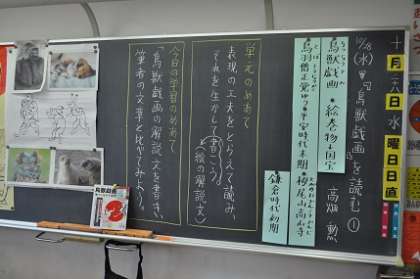 十月二八日水曜日日直
10/28(水)『鳥獣戯画』を読む①
高畑 勲
鳥獣戯画 ・絵巻物・国宝
・平安時代末期・栂尾山高山寺
鎌倉時代初期
単元のめあて
表現の工夫をとらえて読み、
それを生かして書こう。
(絵の解説文)
今日の学習のめあて
鳥獣戯画の解説文を書き、
筆者の文章と比べてみよう。